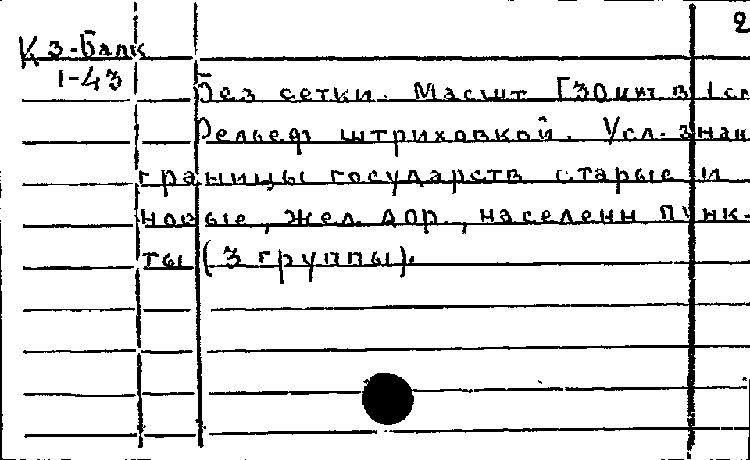 2
К 3-Балк
1-43
Без сетки. Масшт [30 км в 1 см
Рельеф штриховкой. Усл. знак
границы государств старые и
новые, жел. дор., населенн пунк-
ты (3 группы).